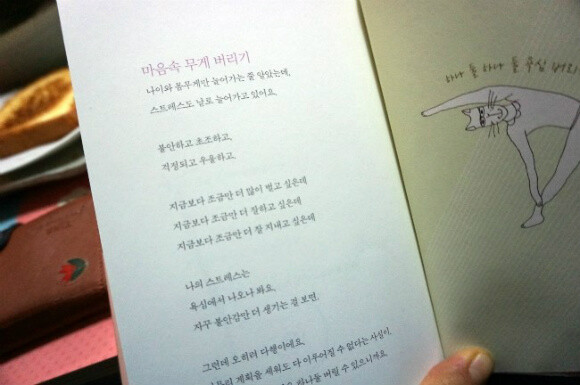 마음속 무게 버리기
나이와 몸무게만 늘어가는 줄 알았는데,
스트레스도 날로 늘어가고 있어요.
불안하고 초조하고,
걱정되고 우울하고.
지금보다 조금만 더 많이 벌고 싶은데
지금보다 조금만 더 잘하고 싶은데
지금보다 조금만 더 잘 지내고 싶은데
나의 스트레스는
욕심에서 나오나 봐요.
자꾸 불안감만 더 생기는 걸 보면.
그런데 오히려 다행이에요.
계획을 세워도 다 이루어질 수 없다는 사실이,
하나를 버릴 수 있으니까요
하나 둘 하나 둘 욕심 버리